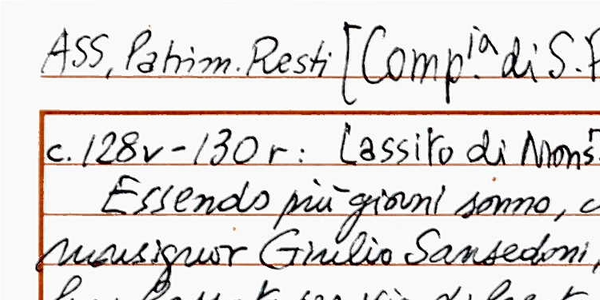 ASS, Patrim. Resti [Comp.ia di S.
c. 128v-130r: Lassito di Mons.
Essendo più giorni sonno,
monsignor Giulio Sansedoni,